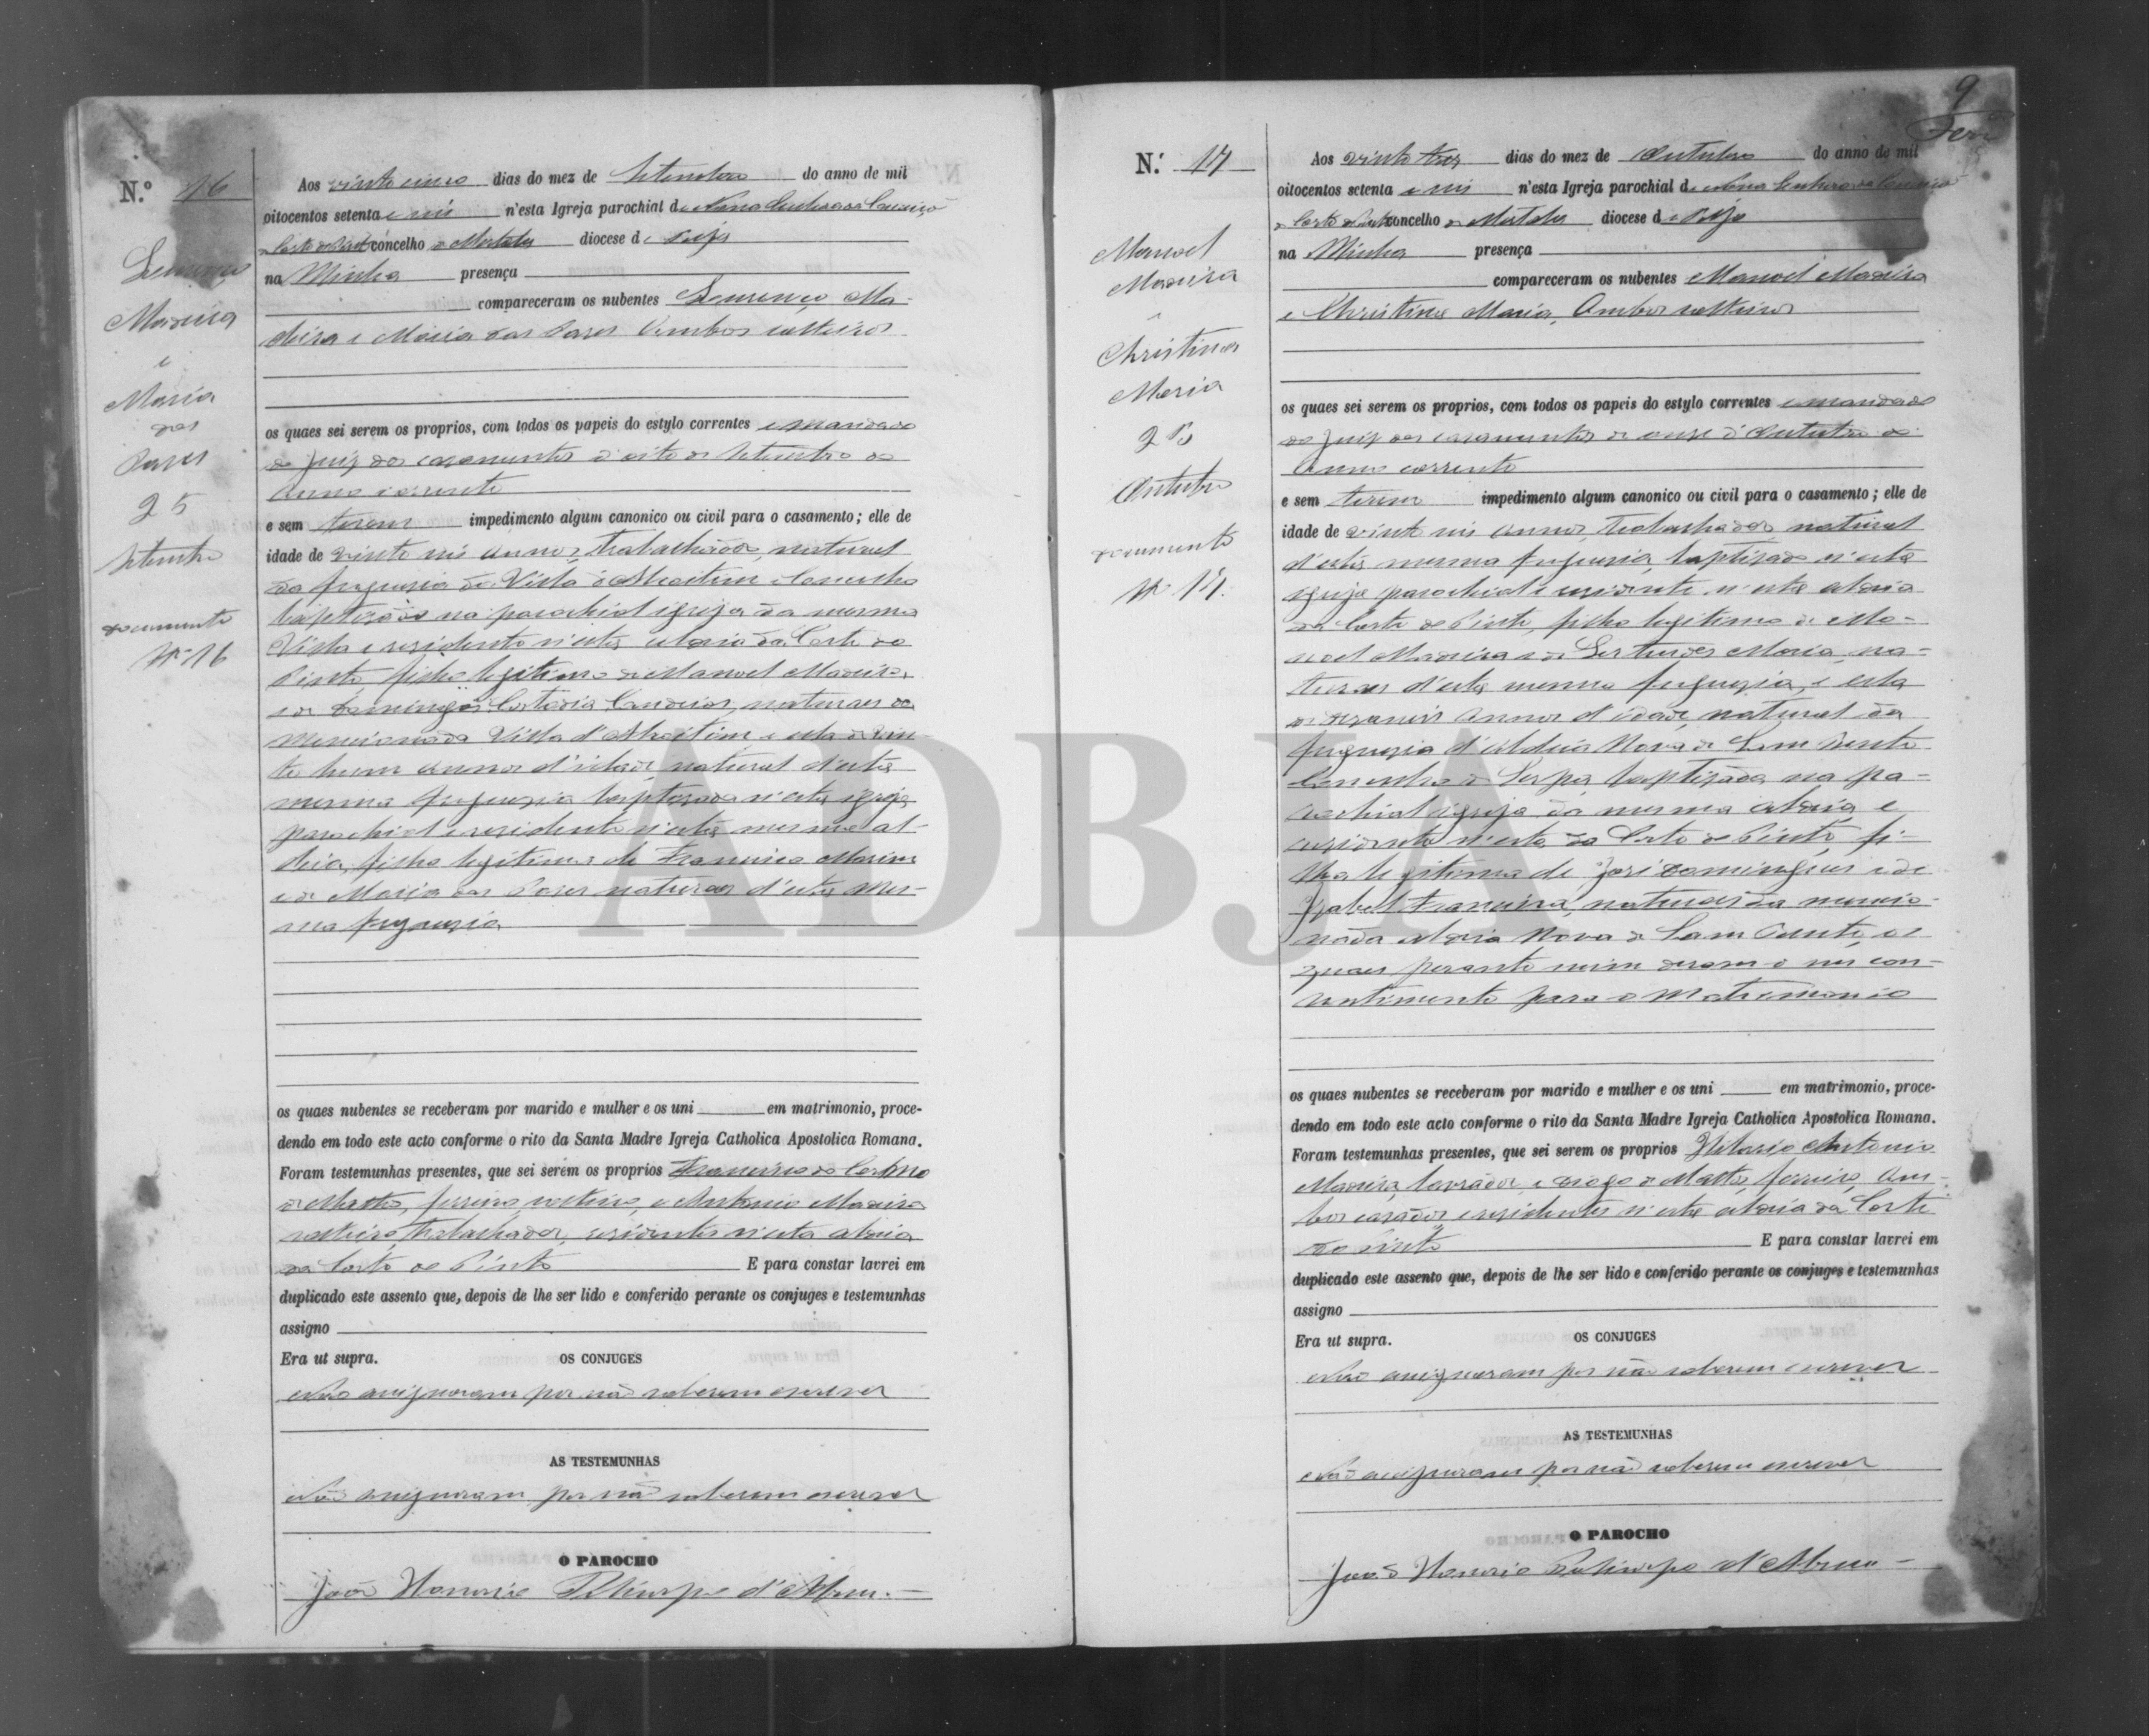 N.º 16
Lourenço
Madeira
e
Maria
das
Dores
25
Setembro
documento
Nº 16
Aos vinte cinco dias do mez de Setembro do anno de mil
oitocentos setenta e seis n'esta Igreja parochial de Nossa Senhora da Conceição
concelho de Mertola diocese de Beja
na Minha presença
compareceram os nubentes Lourenço Ma-
deira e Maria das Dores Ambos solteiros
os quaes sei serem os proprios, com todos os papeis do estylo correntes e mandado
do Juiz dos casamentos d'oito de Setembro do
Anno corrente
e sem terem impedimento algum canonico ou civil para o casamento; elle de
idade de vinte seis annos, Trabalhador, natural
da freguesia da Villa d'Alcoitim Concelho
baptizado na parochial igreja da mesma
Villa e residente n'esta aldeia da Corte do
Pinto filho legitimo de Manoel Madeira,
e de Domingas Custodia, naturaes da
mencionada Villa d'Alcoitim e ella de vin-
te hum annos d'idade natural d'esta
mesma freguesia baptizada n'esta igreja
parochial e residente n'esta mesma al-
deia, filha legitima de Francisco
e de Maria das Dores naturaes d'esta mes-
ma freguesia
os quaes nubentes se receberam por marido e mulher e os uni em matrimonio, proce-
dendo em todo este acto conforme o rito da Santa Madre Igreja Catholica Apostolica Romana.
Foram testemunhas presentes, que sei serem os proprios Francisco do
de Mattos, ferreiro, solteiro, e Antonio Madeira
solteiro, Trabalhador, residentes n'esta aldeia
da Corte do Pinto E para constar lavrei em
duplicado este assento que, depois de lhe ser lido e conferido perante os conjuges e testemunhas
assigno
Era ut supra. OS CONJUGES
Não assignaram por não saberem escrever
AS TESTEMUNHAS
Não assignaram por não saberem escrever
O PAROCHO
João Honorio d'Abreu.
9
N.º 17
Manoel
Madeira
e
Christina
Maria
23
Outubro
documento
Nº 17.
Aos vinte tres dias do mez de Outubro do anno de mil
oitocentos setenta e seis n'esta Igreja parochial de Nossa Senhora da Conceição
concelho de Mertola diocese de Beja
na Minha presença
compareceram os nubentes Manoel Madeira
e Christina Maria, Ambos solteiros
os quaes sei serem os proprios, com todos os papeis do estylo correntes e mandado
do Juiz dos casamentos de onze d'Outubro do
Anno corrente
e sem terem impedimento algum canonico ou civil para o casamento; elle de
idade de vinte seis annos, Trabalhador, natural
d'esta mesma freguesia, baptizado n'esta
igreja parochial e residente n'esta aldeia
da Corte do Pinto, filho legitimo de Ma-
noel Madeira e de Gertrudes Maria, na-
turaes d'esta mesma freguesia, e ella
de dezaseis annos d'idade, natural da
freguesia d'Aldeia Nova de Sam Bento
Concelho de Serpa, baptizada na pa-
rochial igreja da mesma aldeia e
residente n'esta da Corte do Pinto fi-
lha legitima de José Domingues e de
Izabel Francisca, naturaes da mencio-
nada Aldeia Nova de Sam Bento, os
quaes perante mim deram o seu con-
sentimento para o Matrimonio
os quaes nubentes se receberam por marido e mulher e os uni em matrimonio, proce-
dendo em todo este acto conforme o rito da Santa Madre Igreja Catholica Apostolica Romana.
Foram testemunhas presentes, que sei serem os proprios Hilario Antonio
Madeira, lavrador, e Diogo de Mattos, ferreiro, Am-
bos casados, e residentes n'esta aldeia da Corte
do Pinto E para constar lavrei em
duplicado este assento que, depois de lhe ser lido e conferido perante os conjuges e testemunhas
assigno
Era ut supra. OS CONJUGES
Não assignaram por não saberem escrever
AS TESTEMUNHAS
Não assignaram por não saberem escrever
O PAROCHO
João Honorio d'Abreu
ADBJA